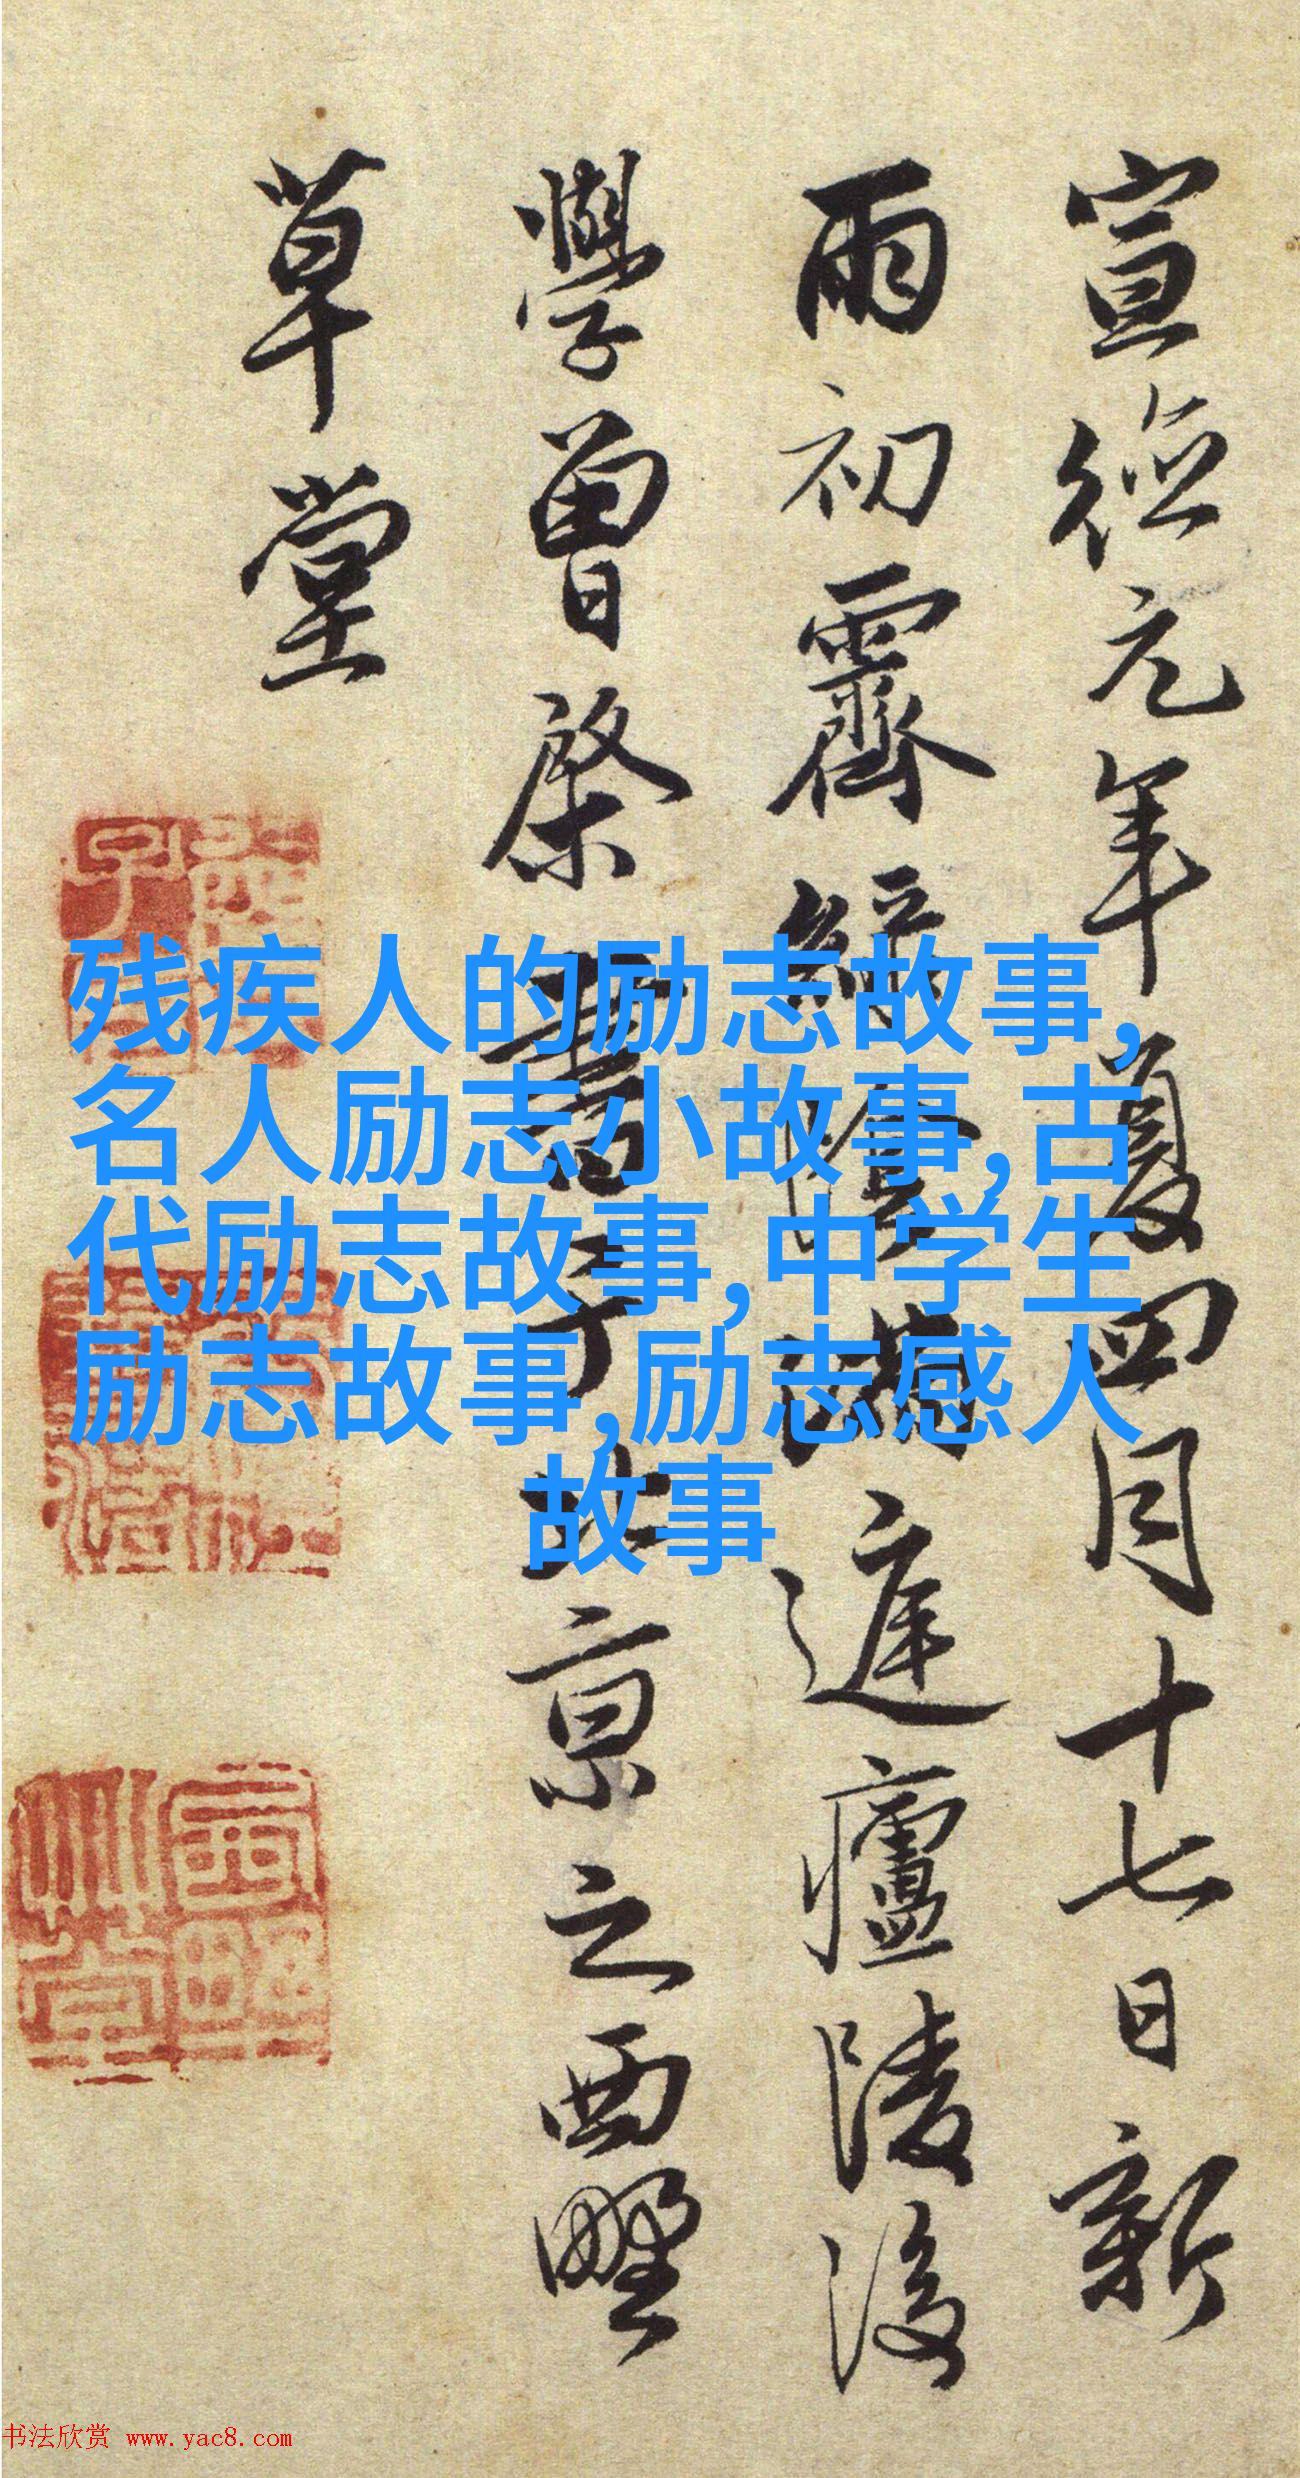 宣德元年夏四月十七日新
雨初霽綠陰滿庭廬陵後
學曾棨書于北京之西墅
草堂
残疾人的励志故事,
名人励志小故事,古
代励志故事,中学生
励志故事,励志感人
故事
书法欣赏 www.yac8.com